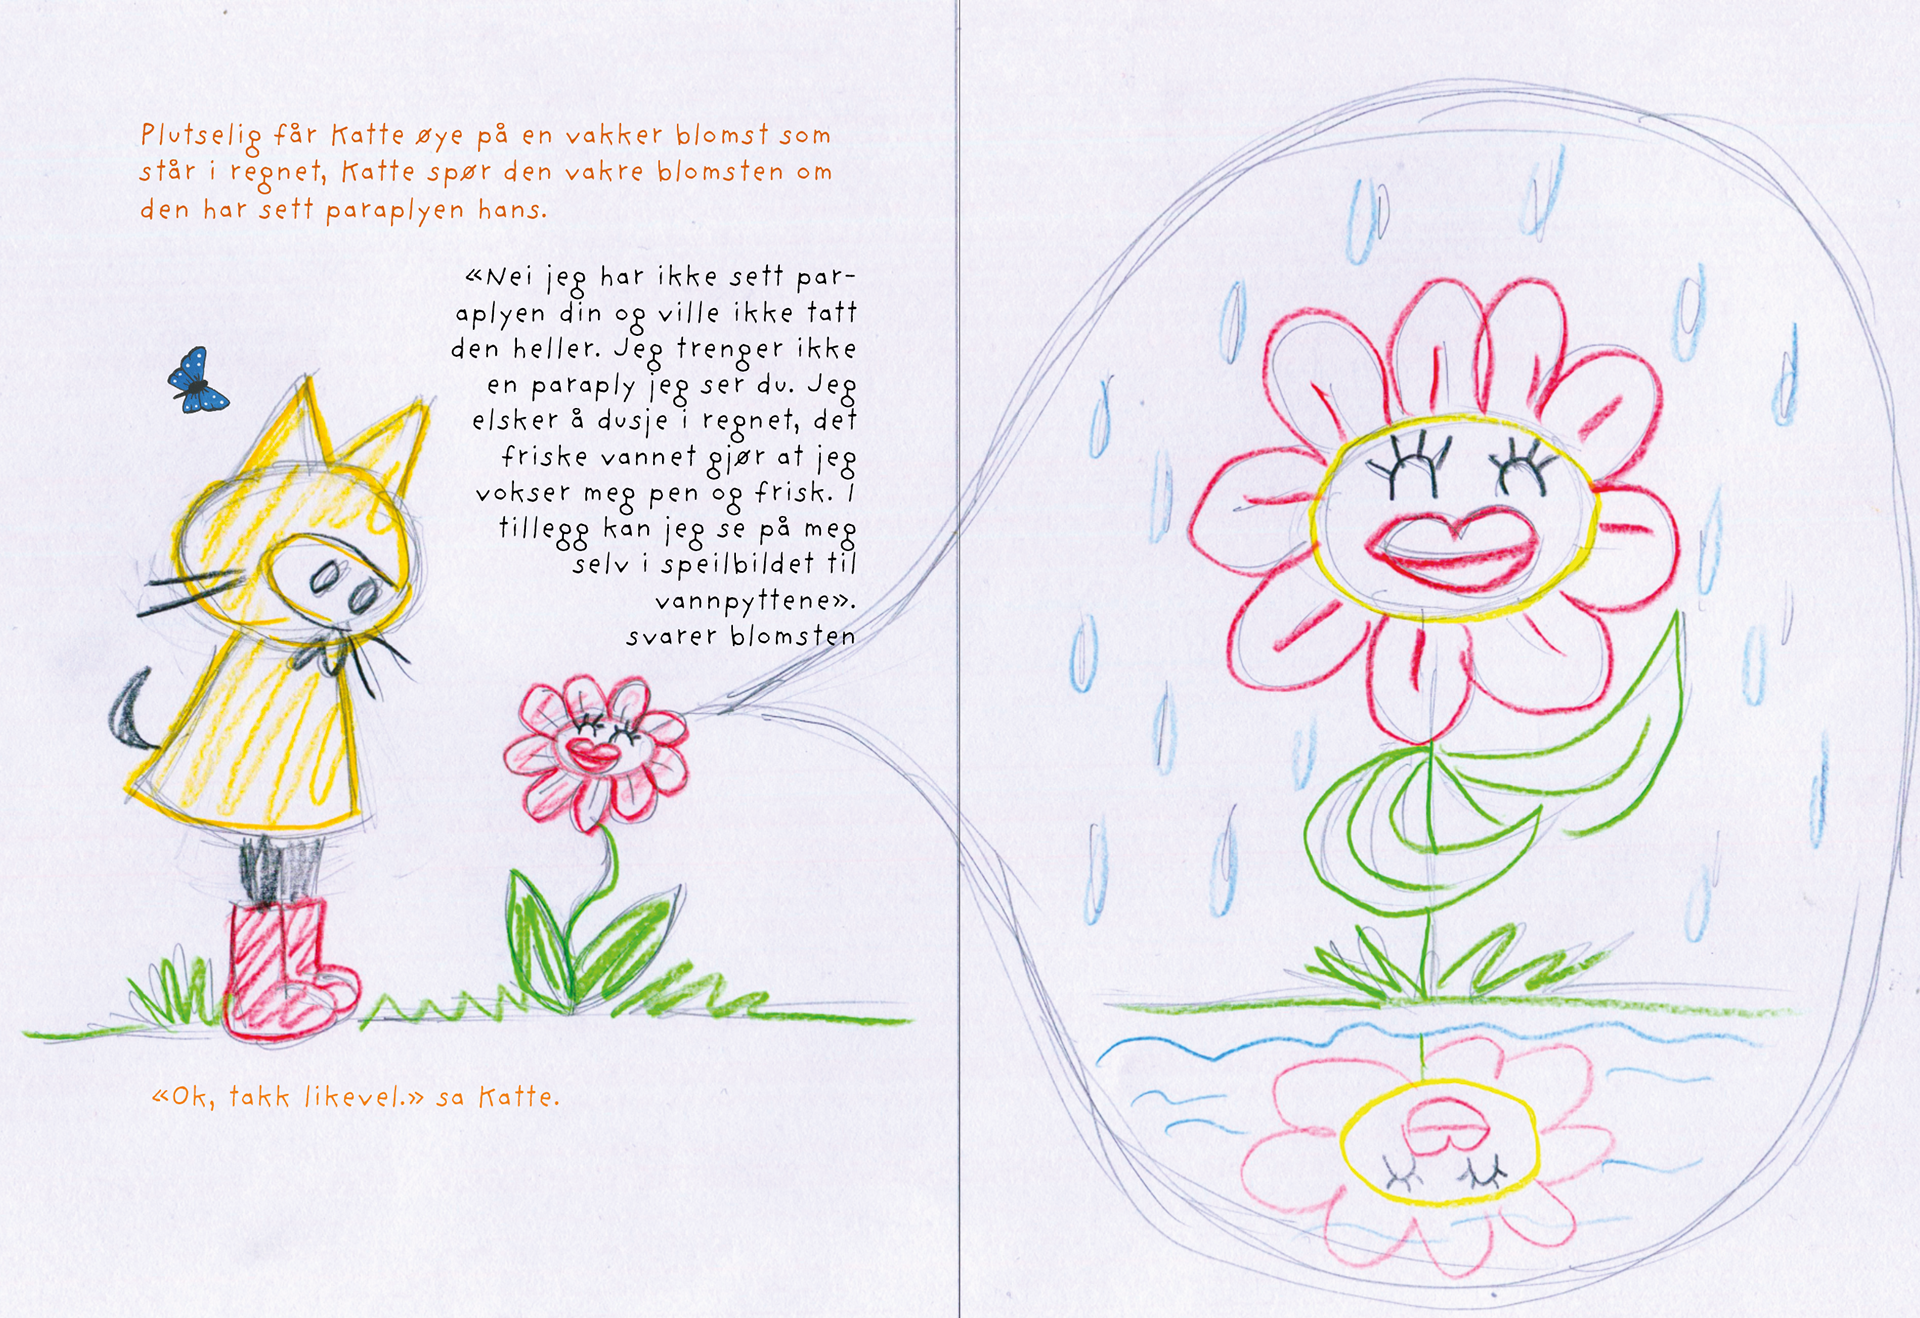 Plutselig får Katte øye på en vakker blomst som
står i regnet, Katte spør den vakre blomsten om
den har sett paraplyen hans.
«Nei jeg har ikke sett par-
aplyen din og ville ikke tatt
den heller. Jeg trenger ikke
en paraply jeg ser du. Jeg
elsker å dusje i regnet, det
friske vannet gjør at jeg
vokser meg pen og frisk. I
tillegg kan jeg se på meg
selv i speilbildet til
vannpyttene».
svarer blomsten
«Ok, takk likevel.» sa Katte.